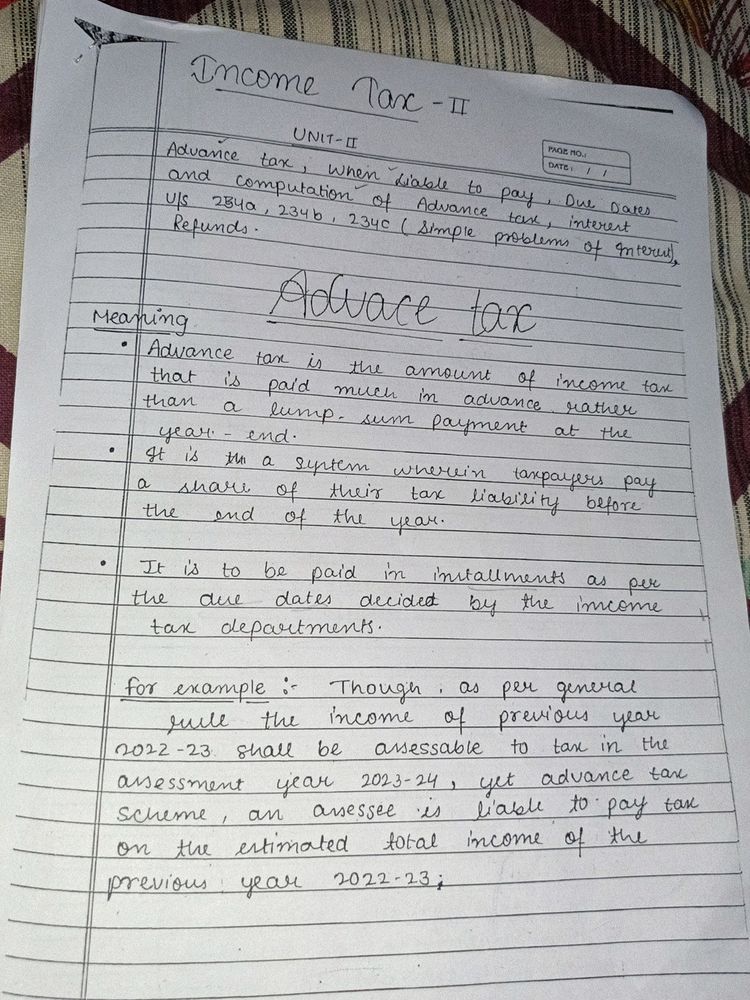 Income Tax - II
UNIT-II
PAGE NO.:
DATE: / /
Advance tax, when liable to pay, Due Dates
and computation of Advance tax, interest
U/s 234a, 234b, 234c (Simple problems of interest),
Refunds.
Advace tax
Meaning
• Advance tax is the amount of income tax
that is paid much in advance rather
than a lump-sum payment at the
year-end.
• It is a system wherein taxpayers pay
a share of their tax liability before
the end of the year.
• It is to be paid in installments as per
the due dates decided by the imcome
tax departments.
for example :- Though, as per general
rule the income of previous year
2022-23 shall be assessable to tax in the
assessment year 2023-24, yet advance tax
scheme, an assessee is liable to pay tax
on the estimated total income of the
previous year 2022-23;